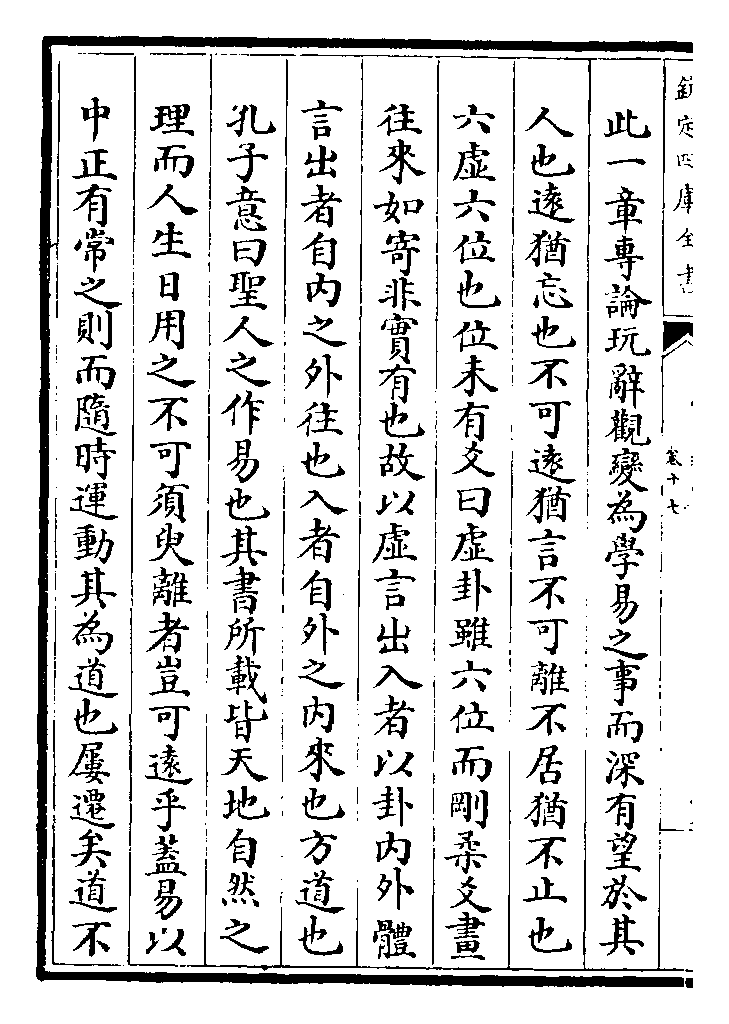 欽定四庫全書
卷十七
此一章專論玩辭觀變為學易之事而深有望於其
人也遠猶忘也不可遠猶言不可離不居猶不止也
六虛六位也位未有爻曰虛卦雖六位而剛柔爻畫
往來如寄非實有也故以虛言出入者以卦內外體
言出者自內之外往也入者自外之內來也方道也
孔子意曰聖人之作易也其書所載皆天地自然之
理而人生日用之不可須臾離者豈可遠乎葢易以
中正有常之則而隨時運動其為道也屢遷矣道不